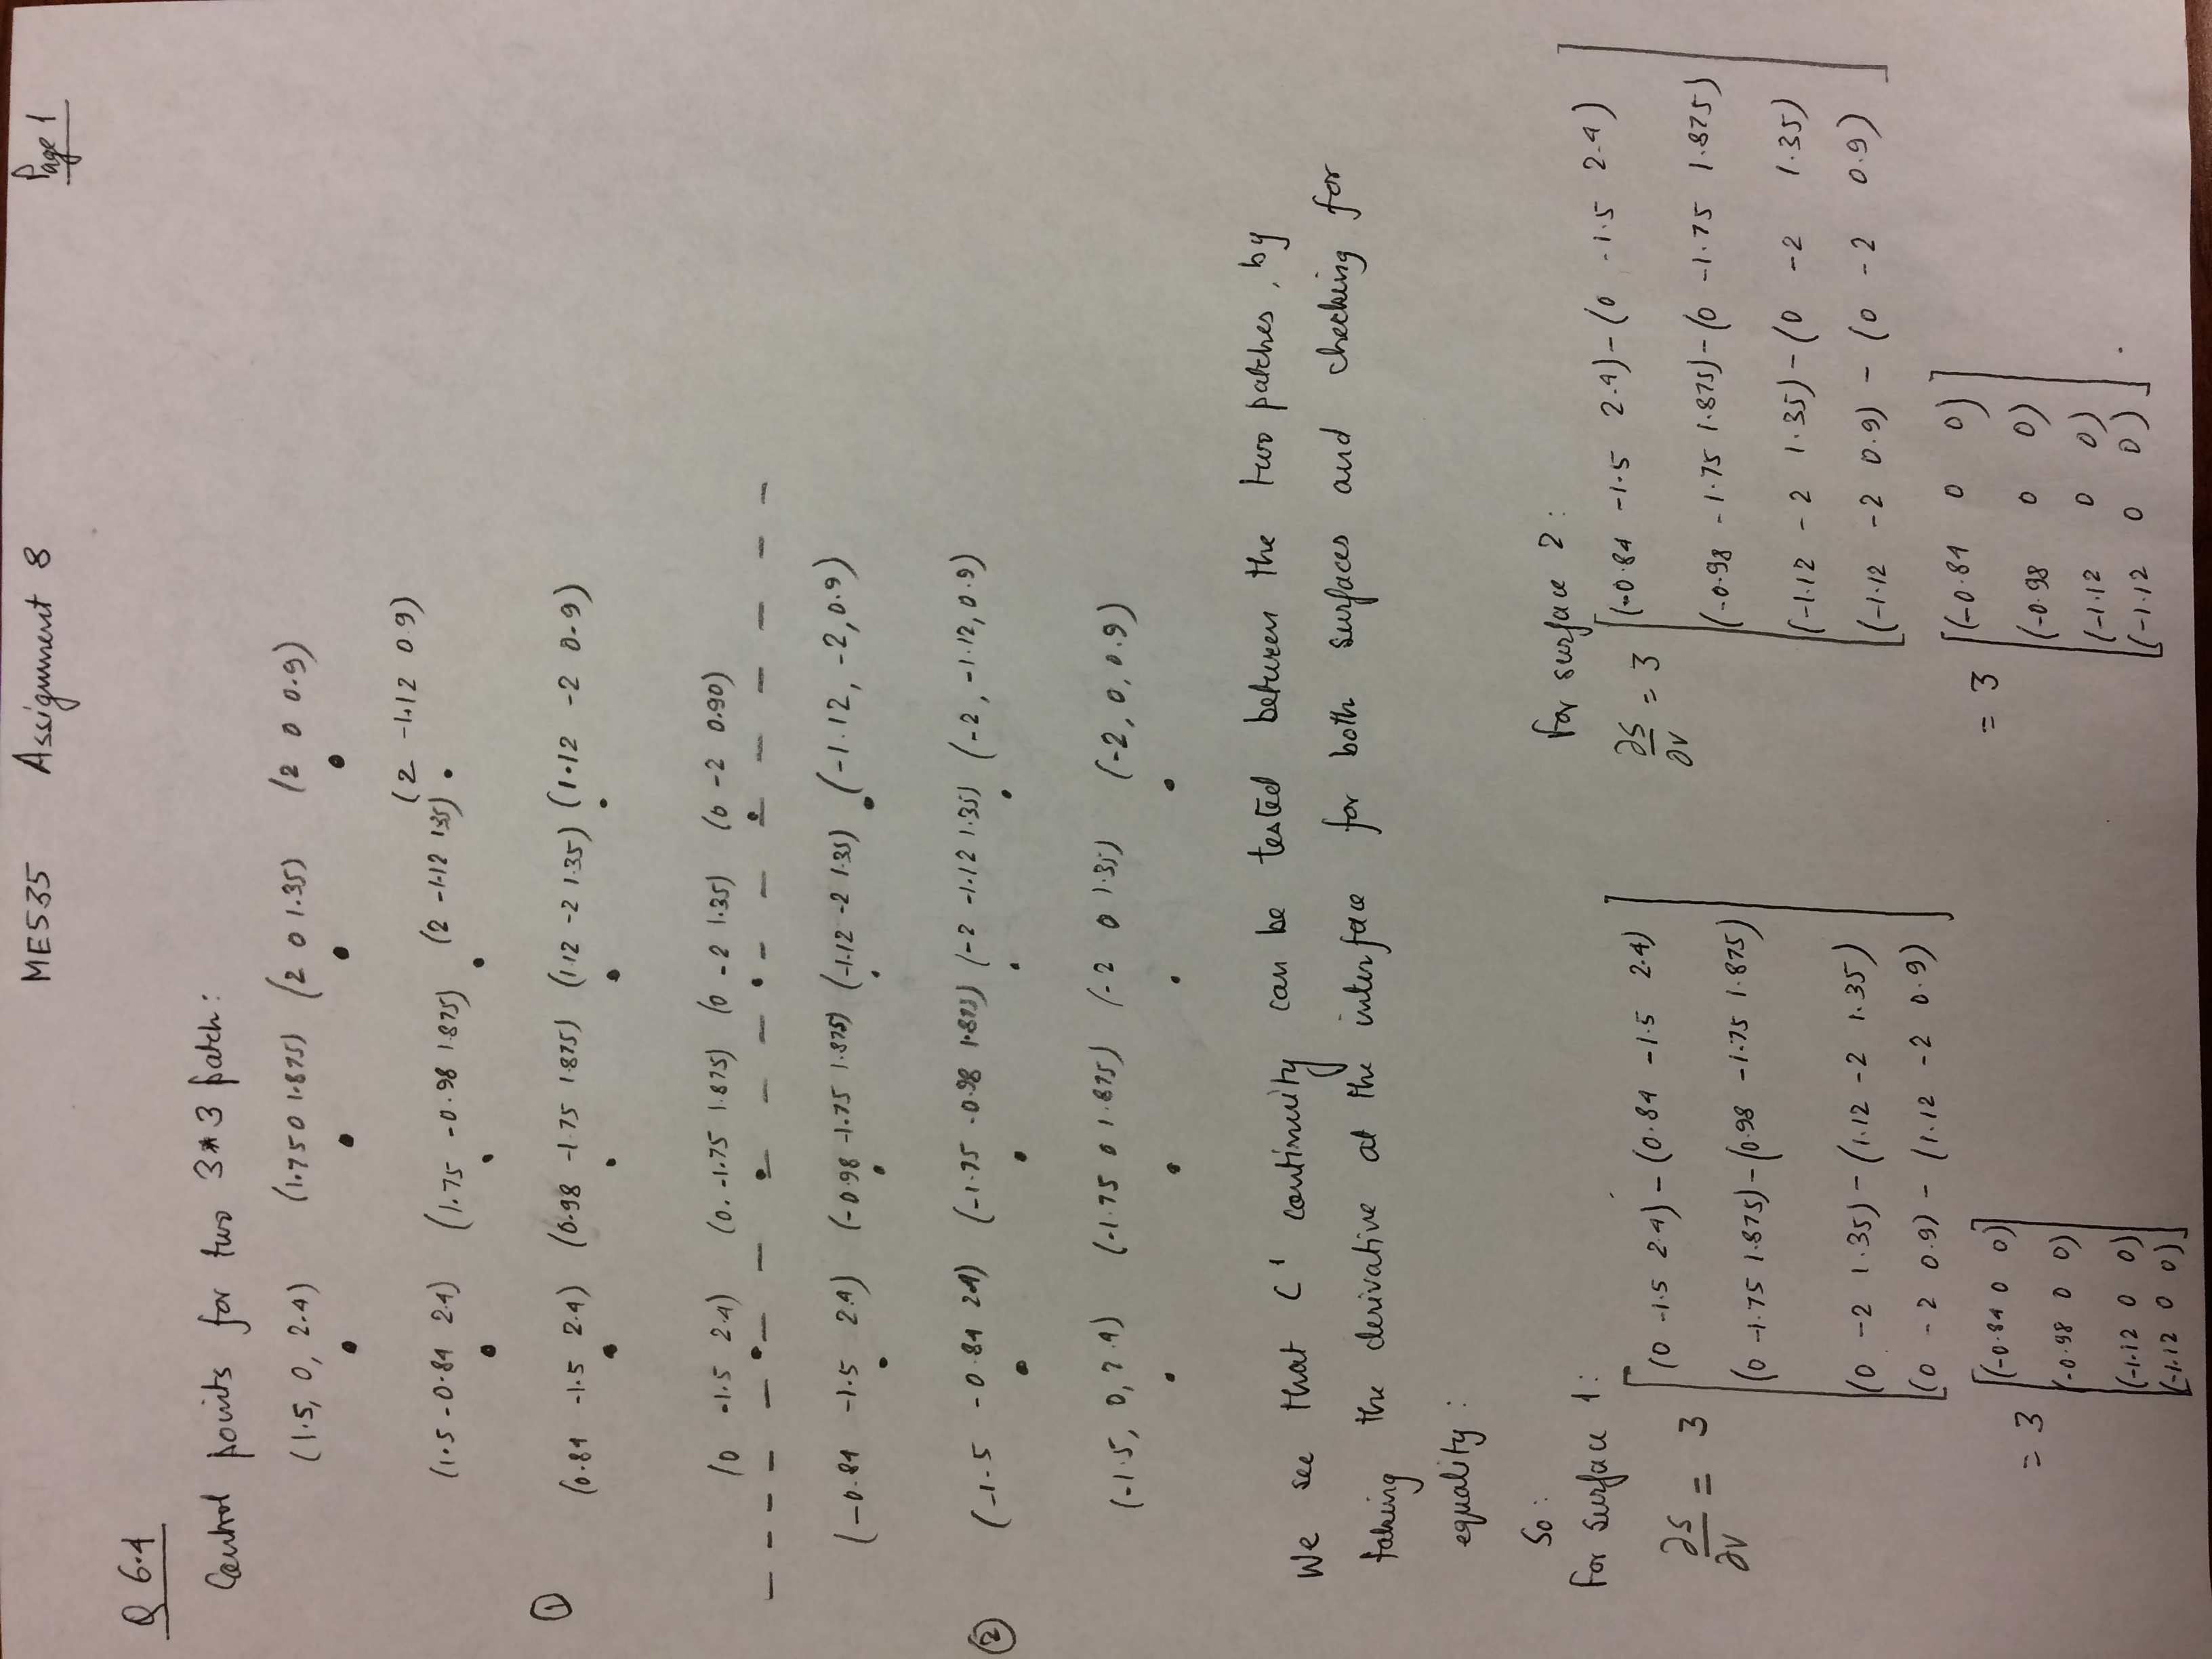 ME535 Assignment 8 Page 1
Q 6.4
Control points for two 3*3 patch:
(1.5, 0, 2.4) (1.75 0 1.875) (2 0 1.35) (2 0 0.9)
(2 -1.12 0.9)
(1.5 -0.84 2.4) (1.75 -0.98 1.875) (2 -1.12 1.35)
①
(0.84 -1.5 2.4) (0.98 -1.75 1.875) (1.12 -2 1.35) (1.12 -2 0.9)
(0 -1.5 2.4) (0. -1.75 1.875) (0 -2 1.35) (0 -2 0.90)
(-0.84 -1.5 2.4) (-0.98 -1.75 1.875) (-1.12 -2 1.35) (-1.12, -2, 0.9)
② (-1.5 -0.84 2.4) (-1.75 -0.98 1.875) (-2 -1.12 1.35) (-2, -1.12, 0.9)
(-1.5, 0, 2.4) (-1.75 0 1.875) (-2 0 1.35) (-2, 0, 0.9)
We see that C¹ continuity can be tested between the two patches, by
taking the derivative at the interface for both surfaces and checking for
equality:
So:
For surface 1:
∂S/∂v = 3 [(0 -1.5 2.4) - (0.84 -1.5 2.4)
(0 -1.75 1.875) - (0.98 -1.75 1.875)
(0 -2 1.35) - (1.12 -2 1.35)
(0 -2 0.9) - (1.12 -2 0.9)]
= 3 [(-0.84 0 0)
(-0.98 0 0)
(-1.12 0 0)
(-1.12 0 0)]
For surface 2:
∂S/∂v = 3 [(-0.84 -1.5 2.4) - (0 -1.5 2.4)
(-0.98 -1.75 1.875) - (0 -1.75 1.875)
(-1.12 -2 1.35) - (0 -2 1.35)
(-1.12 -2 0.9) - (0 -2 0.9)]
= 3 [(-0.84 0 0)
(-0.98 0 0)
(-1.12 0 0)
(-1.12 0 0)].